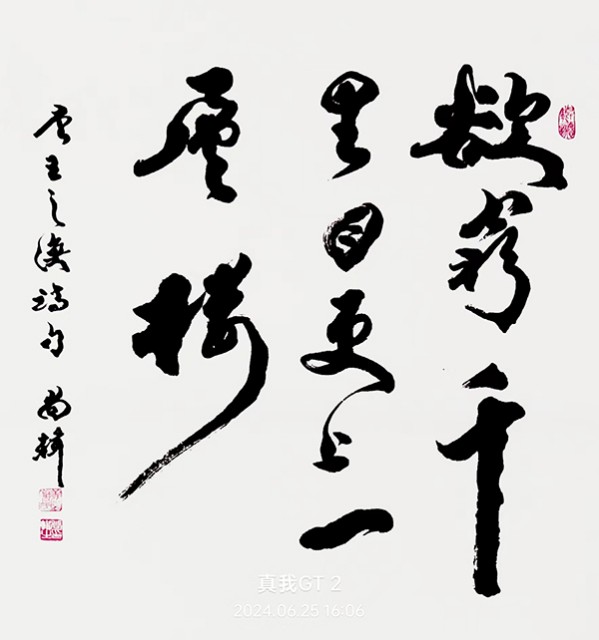 欲穷千
里目更上一
层楼
王之涣诗句 尚辉
真我GT 2
2024.06.25 16:06